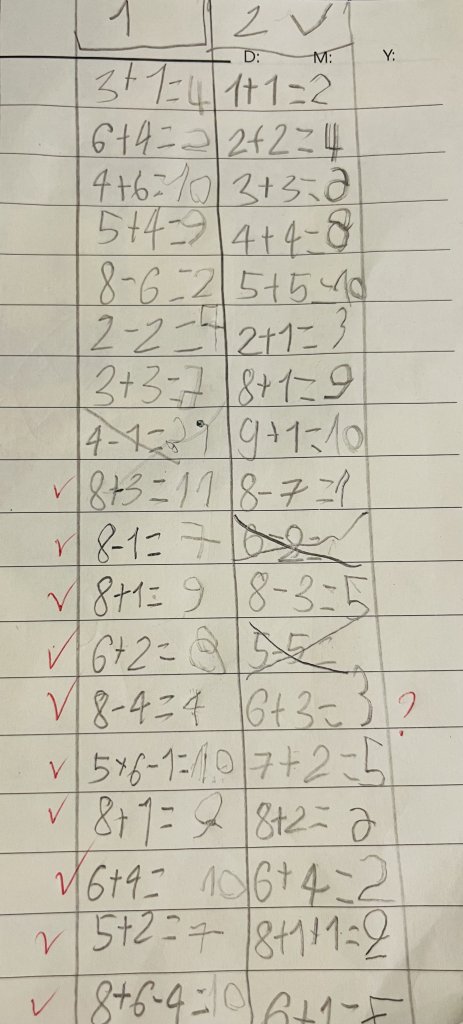 1 2 ✓
D: M: Y:
3+1=4 1+1=2
6+4=2 2+2=4
4+6=10 3+3=2
5+4=9 4+4=8
8-6=2 5+5=10
2-2= 2+1=3
3+3=7 8+1=9
4-1= 9+1=10
✓ 8+3=11 8-7=1
✓ 8-1=7
✓ 8+1=9 8-3=5
✓ 6+2=8 5-5=
✓ 8-4=4 6+3=3 ?
✓ 7+2=5
✓ 8+1=9 8+2=2
✓ 6+4= 10 6+4=2
✓ 5+2=7 8+1+1=2
✓ 8+6-4=10 6+1=5